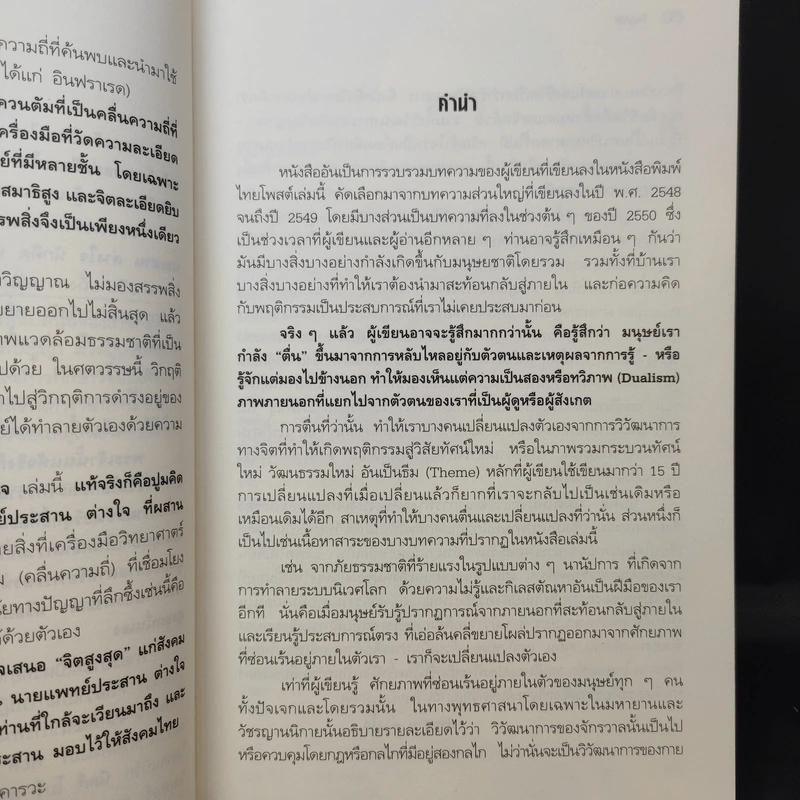 ความถี่ที่ค้นพบและนำมาใช้
ได้แก่ อินฟราเรด)
ควนตัมที่เป็นคลื่นความถี่ที่
ครื่องมือที่วัดความละเอียด
ย์ที่มีหลายชั้น โดยเฉพาะ
สมาธิสูง และจิตละเอียดยิบ
รพสิ่งจึงเป็นเพียงหนึ่งเดียว
วิญญาณ ไม่มองสรรพสิ่ง
ยายออกไปไม่สิ้นสุด แล้ว
าพแวดล้อมธรรมชาติที่เป็น
ปด้วย ในศตวรรษนี้ วิกฤติ
าไปสู่วิกฤติการดำรงอยู่ของ
ย์ได้ทำลายตัวเองด้วยความ
จ เล่มนี้ แท้จริงก็คือปูมคิด
ย์ประสาน ต่างใจ ที่ผสาน
ายสิ่งที่เครื่องมือวิทยาศาตร์
ม (คลื่นความถี่) ที่เชื่อมโยง
นัยทางปัญญาที่ลึกซึ้งเช่นนี้คือ
ด้ด้วยตัวเอง
จเสนอ “จิตสูงสุด” แก่สังคม
น นายแพทย์ประสาน ต่างใจ
ท่านที่ใกล้จะเวียนมาถึง และ
ระสาน มอบไว้ให้สังคมไทย
คารวะ
คำนำ
หนังสืออันเป็นการรวบรวมบทความของผู้เขียนที่เขียนลงในหนังสือพิมพ์
ไทยโพสต์เล่มนี้ คัดเลือกมาจากบทความส่วนใหญ่ที่เขียนลงในปี พ.ศ. 2548
จนถึงปี 2549 โดยมีบางส่วนเป็นบทความที่ลงในช่วงต้น ๆ ของปี 2550 ซึ่ง
เป็นช่วงเวลาที่ผู้เขียนและผู้อ่านอีกหลาย ๆ ท่านอาจรู้สึกเหมือน ๆ กันว่า
มันมีบางสิ่งบางอย่างกำลังเกิดขึ้นกับมนุษยชาติโดยรวม รวมทั้งที่บ้านเรา
บางสิ่งบางอย่างที่ทำให้เราต้องนำมาสะท้อนกลับสู่ภายใน และก่อความคิด
กับพฤติกรรมเป็นประสบการณ์ที่เราไม่เคยประสบมาก่อน
จริง ๆ แล้ว ผู้เขียนอาจจะรู้สึกมากกว่านั้น คือรู้สึกว่า มนุษย์เรา
กำลัง “ตื่น” ขึ้นมาจากการหลับไหลอยู่กับตัวตนและเหตุผลจากการรู้ - หรือ
รู้จักแต่มองไปข้างนอก ทำให้มองเห็นแต่ความเป็นสองหรือทวิภาพ (Dualism)
ภาพภายนอกที่แยกไปจากตัวตนของเราที่เป็นผู้ดูหรือผู้สังเกต
การตื่นที่ว่านั้น ทำให้เราบางคนเปลี่ยนแปลงตัวเองจากการวิวัฒนาการ
ทางจิตที่ทำให้เกิดพฤติกรรมสู่วิสัยทัศน์ใหม่ หรือในภาพรวมกระบวนทัศน์
ใหม่ วัฒนธรรมใหม่ อันเป็นธีม (Theme) หลักที่ผู้เขียนใช้เขียนมากว่า 15 ปี
การเปลี่ยนแปลงที่เมื่อเปลี่ยนแล้วก็ยากที่เราจะกลับไปเป็นเช่นเดิมหรือ
เหมือนเดิมได้อีก สาเหตุที่ทำให้บางคนตื่นและเปลี่ยนแปลงที่ว่านั่น ส่วนหนึ่งก็
เป็นไปเช่นเนื้อหาสาระของบางบทความที่ปรากฏในหนังสือเล่มนี้
เช่น จากภัยธรรมชาติที่ร้ายแรงในรูปแบบต่าง ๆ นานัปการ ที่เกิดจาก
การทำลายระบบนิเวศโลก ด้วยความไม่รู้และกิเลสตัณหาอันเป็นฝีมือของเรา
อีกที นั่นคือเมื่อมนุษย์รับรู้ปรากฏการณ์จากภายนอกที่สะท้อนกลับสู่ภายใน
และเรียนรู้ประสบการณ์ตรง ที่เอ่อล้นคลี่ขยายโผล่ปรากฏออกมาจากศักยภาพ
ที่ซ่อนเร้นอยู่ภายในตัวเรา - เราก็จะเปลี่ยนแปลงตัวเอง
เท่าที่ผู้เขียนรู้ ศักยภาพที่ซ่อนเร้นอยู่ภายในตัวของมนุษย์ทุก ๆ คน
ทั้งปัจเจกและโดยรวมนั้น ในทางพุทธศาสนาโดยเฉพาะในมหายานและ
วัชรญานนิกายนั้นอธิบายรายละเอียดไว้ว่า วิวัฒนาการของจักรวาลนั้นเป็นไป
หรือควบคุมโดยกฎหรือกลไกที่มีอยู่สองกลไก ไม่ว่านั่นจะเป็นวิวัฒนาการของกาย